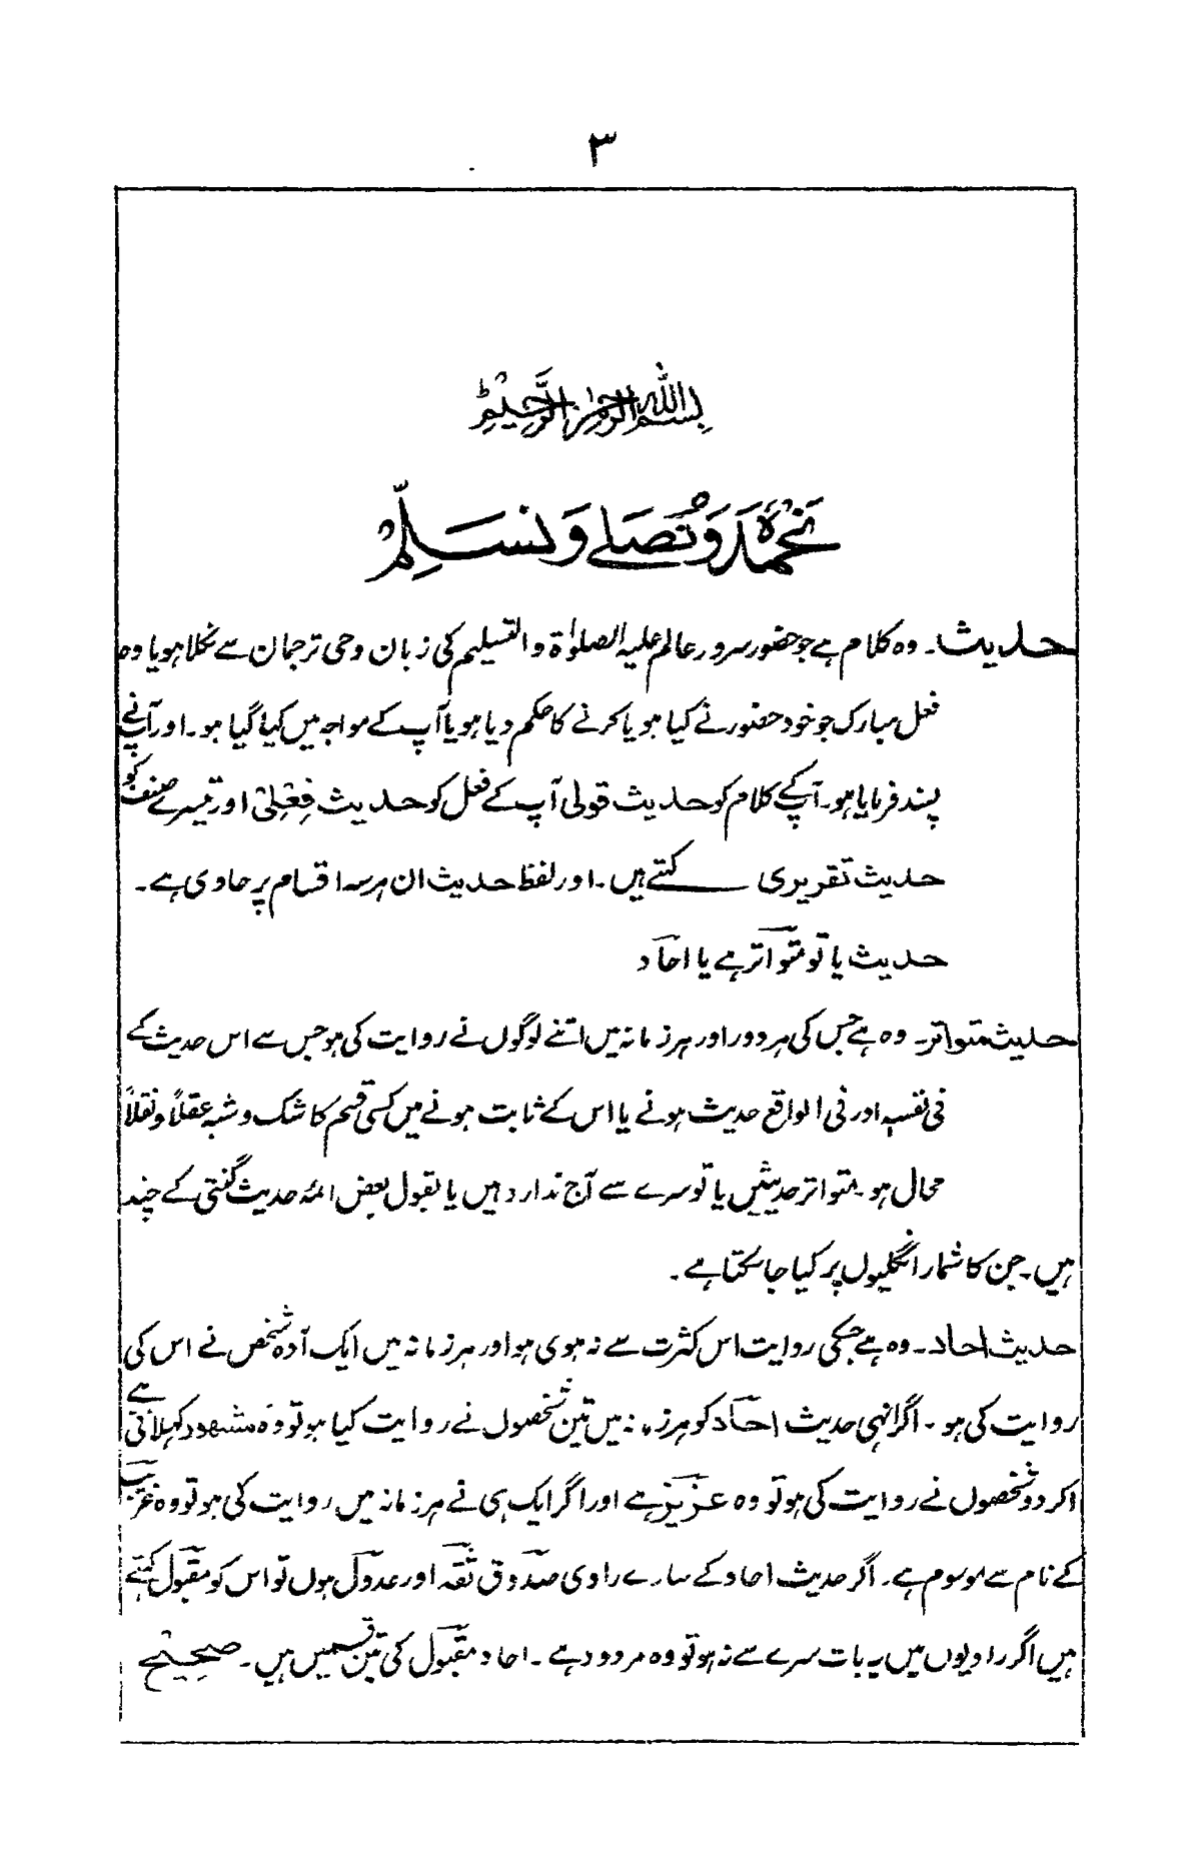 ۳
بسم اللہ الرحمٰن الرحیم ط
نحمدہ و نصلے و نسلم
حدیث۔ وہ کلام ہے جو حضور سرور عالم علیہ الصلوٰۃ و التسلیم کی زبان وحی ترجمان سے نکلا ہو یا وہ
فعل مبارک جو خود حضور نے کیا ہو یا کرنے کا حکم دیا ہو یا آپ کے مواجہ میں کیا گیا ہو۔ اور آپنے
پسند فرمایا ہو۔ آپکے کلام کو حدیث قولی آپ کے فعل کو حدیث فِعْلِیْ اور تیسرے صنف کو
حدیث تقریری کہتے ہیں۔ اور لفظ حدیث ان ہر سہ اقسام پر حاوی ہے۔
حدیث یا تو متواتر ہے یا احاد
حدیث متواتر۔ وہ ہے جس کی ہر دور اور ہر زمانہ میں اتنے لوگوں نے روایت کی ہو جس سے اس حدیث کے
فی نفسہ اور فی الواقع حدیث ہونے یا اس کے ثابت ہونے میں کسی قسم کا شک و شبہ عقلاً و نقلاً
محال ہو۔ متواتر حدیثیں یا تو سرے سے آج ندارد ہیں یا بقول بعض ائمہ حدیث گنتی کے چند
ہیں۔ جن کا شمار انگلیوں پر کیا جا سکتا ہے۔
حدیث احاد۔ وہ ہے جسکی روایت اس کثرت سے نہ ہوی ہو اور ہر زمانہ میں ایک آدہ شخص نے اس کی
روایت کی ہو۔ اگر انہی حدیث احاد کو ہر زمانہ میں تین شخصوں نے روایت کیا ہو تو وہ مشہور کہلاتی ہے
اگر دو شخصوں نے روایت کی ہو تو وہ عزیز ہے اور اگر ایک ہی نے ہر زمانہ میں روایت کی ہو تو وہ غریب
کے نام سے موسوم ہے۔ اگر حدیث احاد کے سارے راوی صدوق ثقہ اور عدول ہوں تو اس کو مقبول کہتے
ہیں اگر راویوں میں یہ بات سرے سے نہ ہو تو وہ مردود ہے۔ احاد مقبول کی تین قسمیں ہیں۔ صحیح